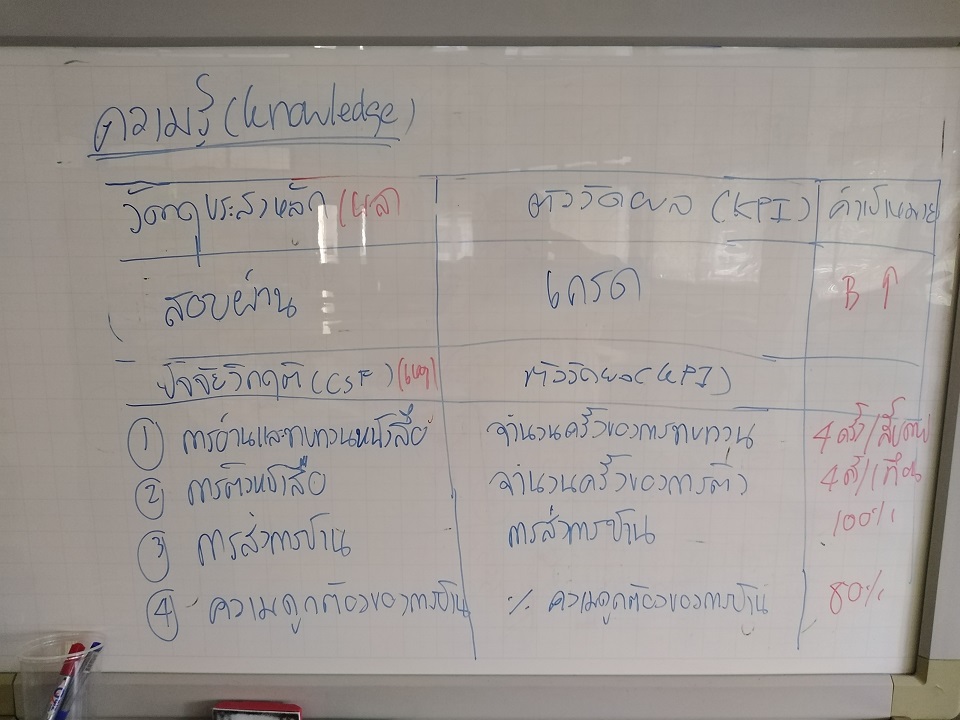 ความรู้ (knowledge)
วัตถุประสงหลัก (ผล) ตัววัดผล (KPI) ค่าเป้าหมาย
สอบผ่าน เกรด B ↑
ปัจจัยวิกฤติ (CSF) (เหตุ) ตัววัดผล (KPI)
① การอ่านและทบทวนหนังสือ จำนวนครั้งของการทบทวน 4 ครั้ง/สัปดาห์
② การติวหนังสือ จำนวนครั้งของการติว 4 ครั้ง/เดือน
③ การส่งการบ้าน การส่งการบ้าน 100%
④ ความถูกต้องของการบ้าน % ความถูกต้องของการบ้าน 80%